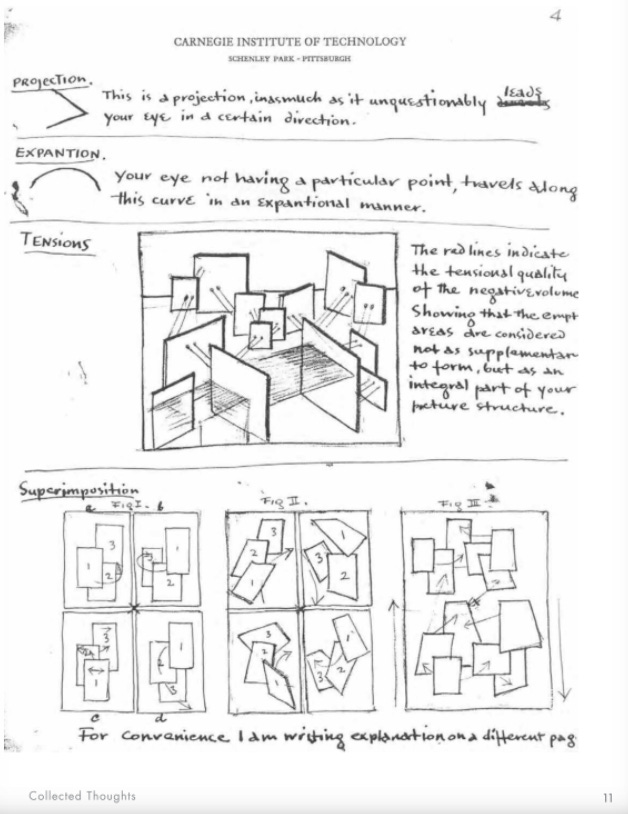 4
CARNEGIE INSTITUTE OF TECHNOLOGY
SCHENLEY PARK - PITTSBURGH
PROJECTION.
This is a projection, inasmuch as it unquestionably leads
your eye in a certain direction.
EXPANTION.
Your eye not having a particular point, travels along
this curve in an expantional manner.
TENSIONS
The red lines indicate
the tensional quality
of the negative volume
Showing that the empt
areas are considered
not as supplementar
to form, but as an
integral part of your
picture structure.
Superimposition
a Fig I. b
Fig II.
Fig III
3
1
2
1
2
3
2
1
1
3
2
3
1
1
2
3
3
2
1
1
2
3
c d
For convenience I am writing explanation on a different pag
Collected Thoughts
11